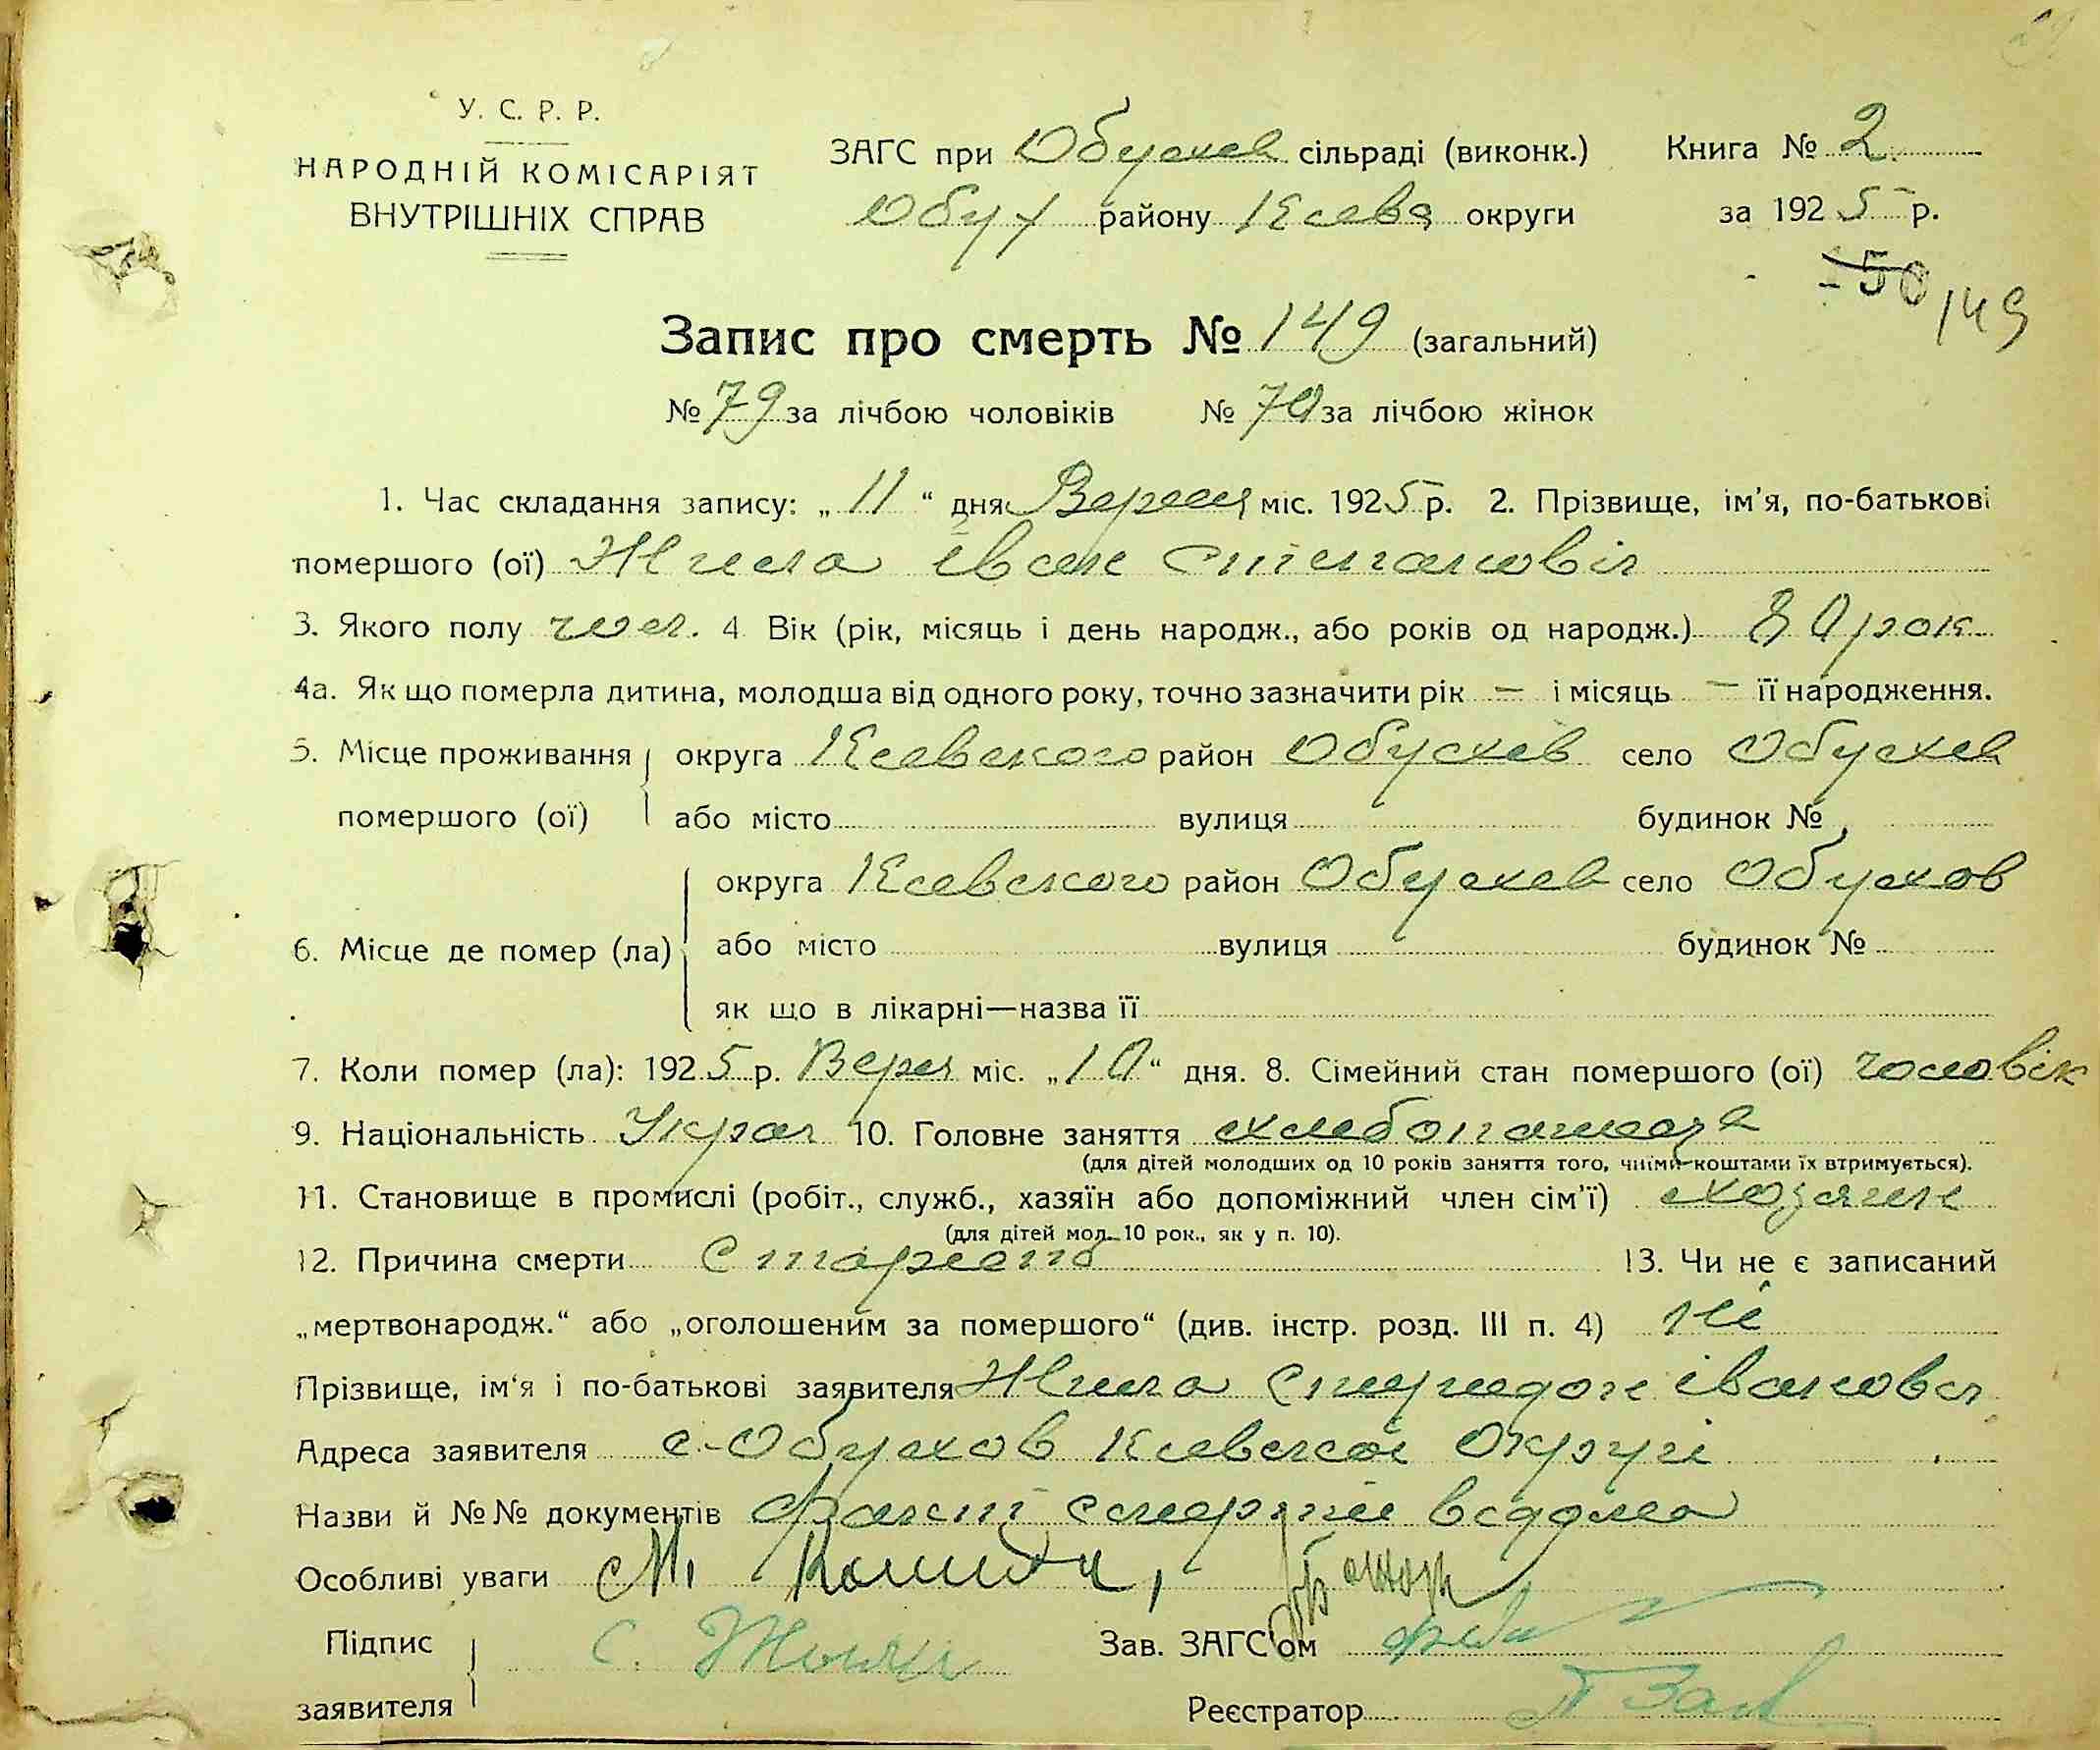 У. С. Р. Р.
НАРОДНІЙ КОМІСАРІЯТ
ВНУТРІШНІХ СПРАВ
ЗАГС при Обухов сільраді (виконк.)
Обух району Києвс округи
Книга № 2
за 1925 р.
50/149
Запис про смерть № 149 (загальний)
№ 79 за лічбою чоловіків № 70 за лічбою жінок
1. Час складання запису: „ 11 “ дня Вересня міс. 1925 р. 2. Прізвище, ім'я, по-батькові
помершого (ої) Жила Іван Степанович
3. Якого полу чол. 4 Вік (рік, місяць і день народж., або років од народж.) 80 рок
4а. Як що померла дитина, молодша від одного року, точно зазначити рік — і місяць — її народження.
5. Місце проживання помершого (ої) округа Киевского район Обухов село Обухов
або місто вулиця будинок №
6. Місце де помер (ла) округа Киевского район Обухов село Обухов
або місто вулиця будинок №
як що в лікарні—назва її
7. Коли помер (ла): 1925 р. Верес міс. „10“ дня. 8. Сімейний стан помершого (ої) чоловік
9. Національність Украг 10. Головне заняття
(для дітей молодших од 10 років заняття того, чиїми коштами їх втримується).
11. Становище в промислі (робіт., служб., хазяїн або допоміжний член сім'ї) хозяин
(для дітей мол. 10 рок., як у п. 10).
12. Причина смерти Старость 13. Чи не є записаний
„мертвонародж.“ або „оголошеним за помершого“ (див. інстр. розд. III п. 4) ні
Прізвище, ім'я і по-батькові заявителя Жила Спиридон Іванович
Адреса заявителя с-Обухов Киевскоі Округі
Назви й №№ документів факт смерти
Особливі уваги М.
Підпис заявителя С.
Зав. ЗАГС'ом
Реєстратор